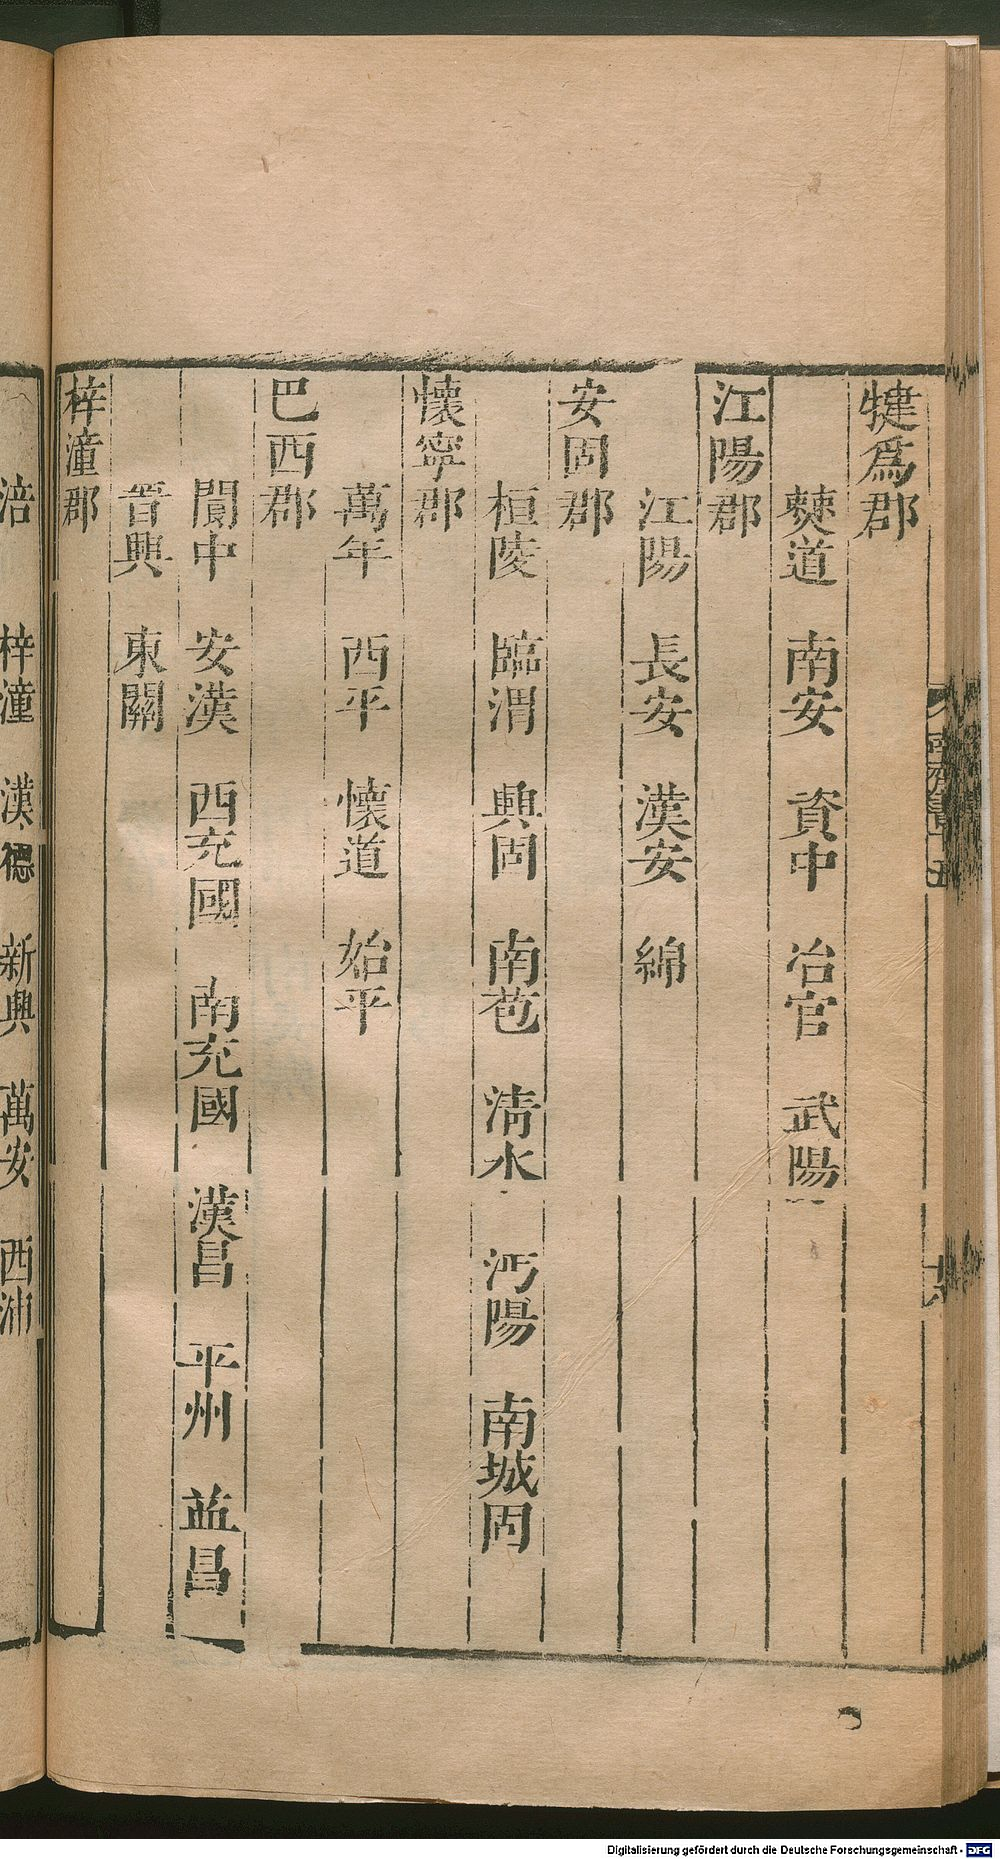 犍爲郡
僰道　南安　資中　冶官　武陽
江陽郡
江陽　長安　漢安　綿
安固郡
桓陵　臨渭　興固　南苞　清水　沔陽　南城固
懷寧郡
萬年　西平　懷道　始平
巴西郡
閬中　安漢　西充國　南充國　漢昌　平州　益昌
晉興　東關
梓潼郡
涪　梓潼　漢德　新興　萬安　西浦
Digitalisierung gefördert durch die Deutsche Forschungsgemeinschaft - DFG